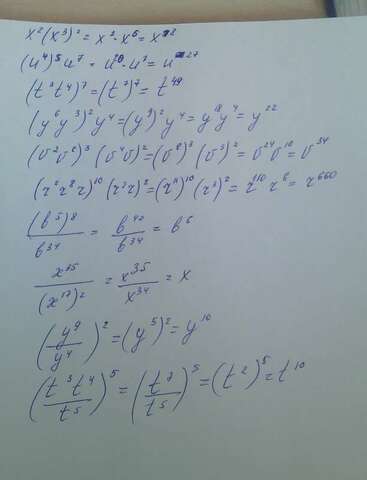 x²(x³)² = x²·x⁶ = x⁸
(u⁴)⁵u⁷ = u²⁰·u⁷ = u²⁷
(t³t⁴)⁷ = (t⁷)⁷ = t⁴⁹
(y⁶y³)²y⁴ = (y⁹)²y⁴ = y¹⁸y⁴ = y²²
(v²v⁶)³(v⁴v)² = (v⁸)³(v⁵)² = v²⁴v¹⁰ = v³⁴
(b⁵)⁸/b³⁴ = b⁴⁰/b³⁴ = b⁶
x³⁵/(x¹⁷)² = x³⁵/x³⁴ = x
(y⁹/y⁴)² = (y⁵)² = y¹⁰
(t³t⁴/t⁵)⁵ = (t⁷/t⁵)⁵ = (t²)⁵ = t¹⁰